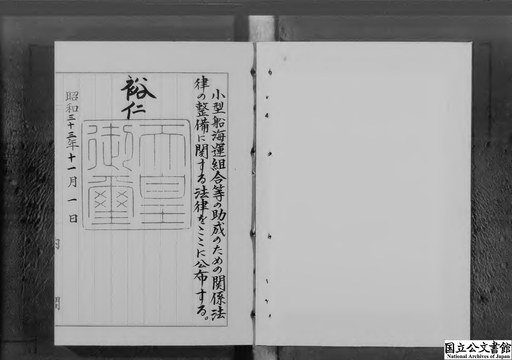 小型船海運組合等の助成のための関係法
律の整備に関する法律をここに公布する。
裕仁
天皇
御璽
昭和三十三年十一月一日
国立公文書館
National Archives of Japan